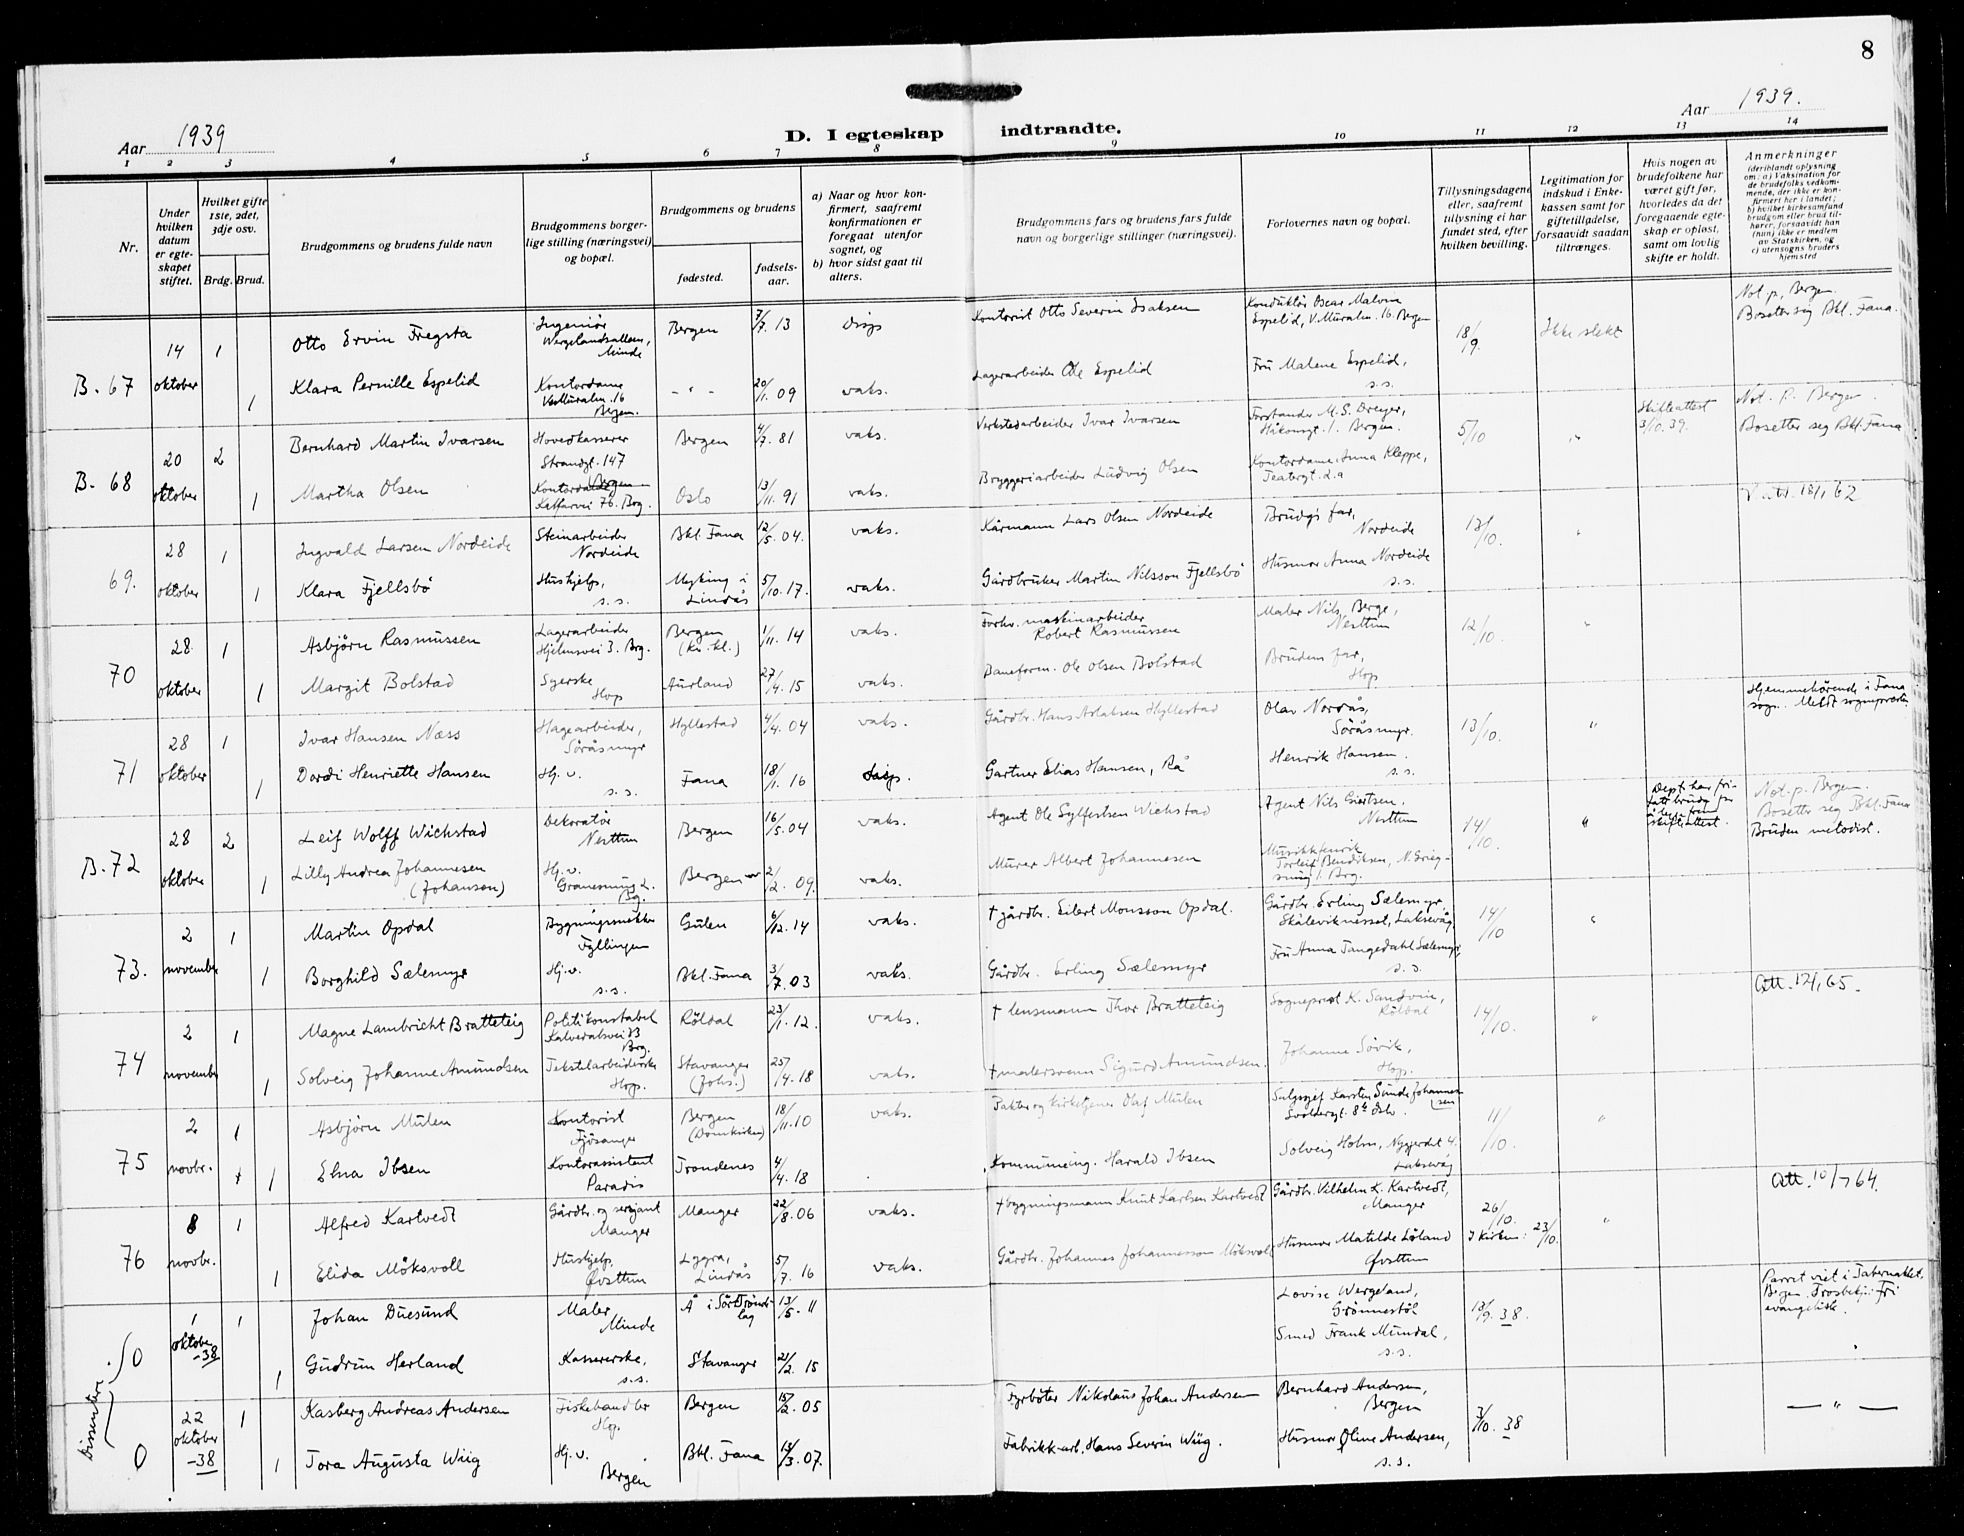 8
Aar 1939
D. I egteskap indtraadte.
Aar 1939.
1 2 3 4 5 6 7 8 9 10 11 12 13 14
Nr.
Under hvilken datum er egteskapet stiftet.
Hvilket gifte 1ste, 2det, 3dje osv.
Brdg. Brud.
Brudgommens og brudens fulde navn
Brudgommens borgerlige stilling (næringsvei) og bopæl.
Brudgommens og brudens
fødested.
fødselsaar.
a) Naar og hvor konfirmert, saafremt konfirmationen er foregaat utenfor sognet, og
b) hvor sidst gaat til alters.
Brudgommens fars og brudens fars fulde navn og borgerlige stillinger (næringsvei).
Forlovernes navn og bopæl.
Tillysningsdagene eller, saafremt tillysning ei har fundet sted, efter hvilken bevilling.
Legitimation for indskud i Enkekassen samt for giftetilladelse, forsaavidt saadan tiltrænges.
Hvis nogen av brudefolkene har været gift før, hvorledes da det foregaaende egteskap er opløst, samt om lovlig skifte er holdt.
Anmerkninger
(deriblandt oplysning om: a) Vaksination for de brudefolks vedkommende, der ikke er konfirmert her i landet; b) hvilket kirkesamfund brudgom eller brud tilhører, forsaavidt han (hun) ikke er medlem av Statskirken, og c) utensogns bruders hjemsted
B. 67 14 oktober 1 Otto Ervin Fregsta Ingeniør Wergelandsalleen, Minde Bergen 7/7. 13 disp Kontorist Otto Severin Isaksen Konduktør Oscar Malvin Espelid, V. Muralm. 16. Bergen 18/9. Ikke slekt Not. p. Bergen. Bosetter sig Bkl. Fana.
1 Klara Pernille Espelid Kontordame V. Muralm. 16 Bergen. - " - 20/1. 09 vaks. Lagerarbeider Ole Espelid Fru Malene Espelid, s.s.
B. 68 20 oktober 2 Bernhard Martin Ivarsen Hovedkasserer Strandgt. 147 Bergen Bergen 4/7. 81 vaks. Verkstedarbeider Ivar Ivarsen Forstander M. S. Dreyer, Håkonsgt. 1. Bergen. 5/10 " Skifteattest 3/10. 39. Not. p. Bergen. Bosetter seg Bkl. Fana
1 Martha Olsen Kalfarvei 76. Brg. Oslo 13/11. 91 vaks. Bryggeriarbeider Ludvig Olsen Kontordame Anna Kleppe, Teatergt. 2.a
69. 28 oktober 1 Ingvald Larsen Nordeide Steinarbeider Nordeide Bkl. Fana 12/5. 04. vaks. Kårmann Lars Olsen Nordeide Brudg's far, Nordeide 13/10. "
1 Klara Fjellsbö Hushjelp, s.s. Myking i Lindås 5/10. 17. vaks. Gårdbruker Martin Nilsson Fjellsbö Husmor Anna Nordeide s.s.
70 28. oktober 1 Asbjørn Rasmussen Lagerarbeider Hjelmsvei 3. Brg. Bergen 1/11. 14 vaks. Forhv. maskinarbeider Robert Rasmussen Maler Nils Berge, Nesttun 12/10. "
1 Margit Bolstad Syerske Hop Aurland 27/4. 15 vaks. Baneform. Ole Olsen Bolstad Brudens far, Hop
71 28 oktober 1 Ivar Hansen Næss Hagearbeider, Söråsmyr Hyllestad 4/4. 04 vaks. Gårdbr. Hans Aslaksen Hyllestad Olav Nordås, Söråsmyr. 13/10. " Hjemmehørende i Fana sogn. Meldt sogneprest
1 Dordi Henriette Hansen Hj. v. s.s. Fana 18/1. 16 disp. Gartner Elias Hansen, Rå Henrik Hansen. s.s.
B. 72 28 oktober 2 Leif Wolff Wichstad Dekoratør Nesttun Bergen 16/5. 04 vaks. Agent Ole Sylfestsen Wichstad Agent Nils Giertsen. Nesttun 14/10. " skifteattest. Not. p. Bergen. Bosetter seg Bkl. Fana Bruden metodist.
1 Lilly Andrea Johannesen (Johansen) Hj. v. Bg. Bergen 2/12. 09. vaks. Murer Albert Johannesen Torleif Bendiksen, N. Griegsmug 1. Brg.
73. 2 november 1 Martin Opdal Fyllingen Gulen 6/12. 14 vaks. † gårdbr. Eilert Monsson Opdal. Gårdbr. Erling Sælemyr, Skåleviknesset, Laksevåg. 14/10 "
1 Borghild Sælemyr Hj. v. s.s. Bkl. Fana 3/7. 03 vaks. Gårdbr. Erling Sælemyr Fru Anna Tangedahl Sælemyr, s.s.
74 2 november 1 Magne Lambricht Bratteteig Politikonstabel Brg. Röldal 23/1. 12. vaks. † lensmann Thor Bratteteig Sogneprest K. Sandvin, Röldal 14/10. " Att. 12/1 65.
1 Solveig Johanne Amundsen Tekstilarbeiderske Hop. Stavanger (Johs.) 25/4. 18 vaks. † malersvenn Sigurd Amundsen. Johanne Sövik, Hop.
75 2 novbr. 1 Asbjörn Mulen Kontorist Fjösanger Bergen (Domkirken) 18/11. 10 vaks. Pakter og kirketjener Olaf Mulen Salgssjef Karsten Sunde Johannessen Oslo. 11/10. "
1 Elna Ibsen Kontorassistent Paradis Trondenes 4/4. 18 Kommuneing. Harald Ibsen Solveig Holm, Nygjerdet 4. Laksevåg
76 8 novbr. 1 Alfred Kartvedt Gårdbr. og sersjant Manger Manger 22/8. 06 vaks. † bygningsmann Knut Karlsen Kartvedt Gårdbr. Vilhelm K. Kartvedt, Manger 26/10. I kirken: 23/10. " Att. 10/7 64.
1 Elida Möksvoll Hushjelp, Øvsttun Lygra, Lindås 5/7. 16 vaks. Gårdbr. Johannes Johannesson Möksvoll Husmor Matilde Löland Øvsttun
Dissentere
0 1 oktober -38 1 Johan Duesund Maler, Minde Å i Sör Tröndelag 13/5. 11 Lovise Wergeland, Grönnestöl 13/9. 38. Parret viet i Tabernaklet. Bergen. Frie evangeliske.
1 Gudrun Herland Kassererske, s.s. Stavanger 21/2. 15 Smed Frank Mundal, s.s.
0 22 oktober -38 1 Kasberg Andreas Andersen Fiskehandler Hop. Bergen 15/2. 05 Fyrböter Nikolaus Johan Andersen Bernhard Andersen, Bergen 3/10. 38 — " —
1 Tora Augusta Wiig Hj. v. Bergen Bkl. Fana 13/3. 07. Fabrikk-arb. Hans Severin Wiig. Husmor Oline Andersen, s.s.